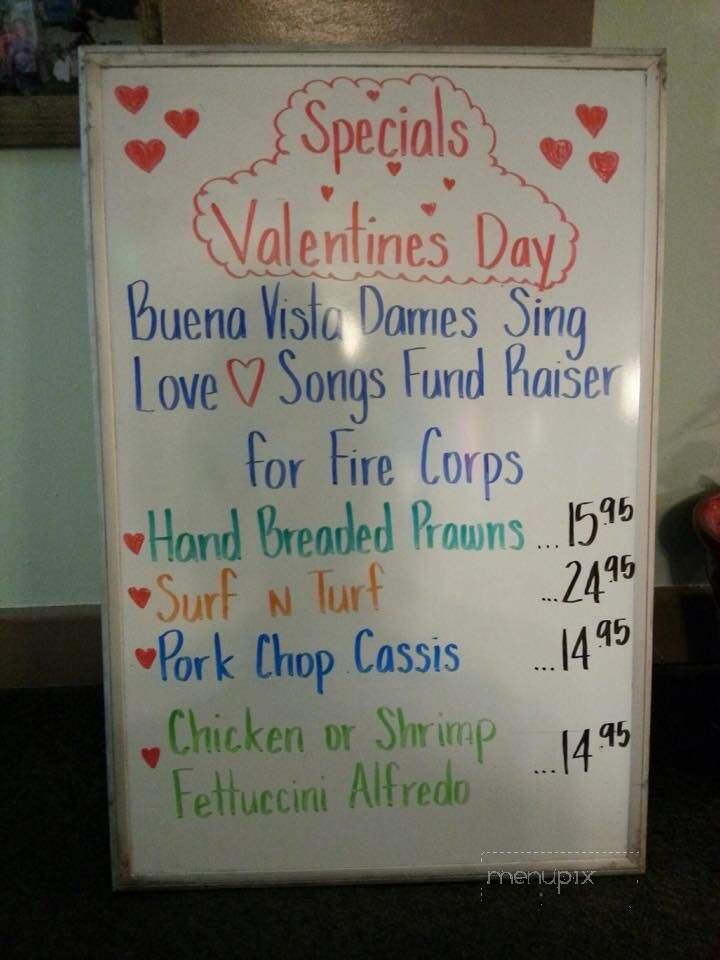 Specials
Valentines Day
Buena Vista Dames Sing
Love Songs Fund Raiser
for Fire Corps
Hand Breaded Prawns ... 15.95
Surf N Turf ... 24.95
Pork Chop Cassis ... 14.95
Chicken or Shrimp
Fettuccini Alfredo ... 14.95
menupix